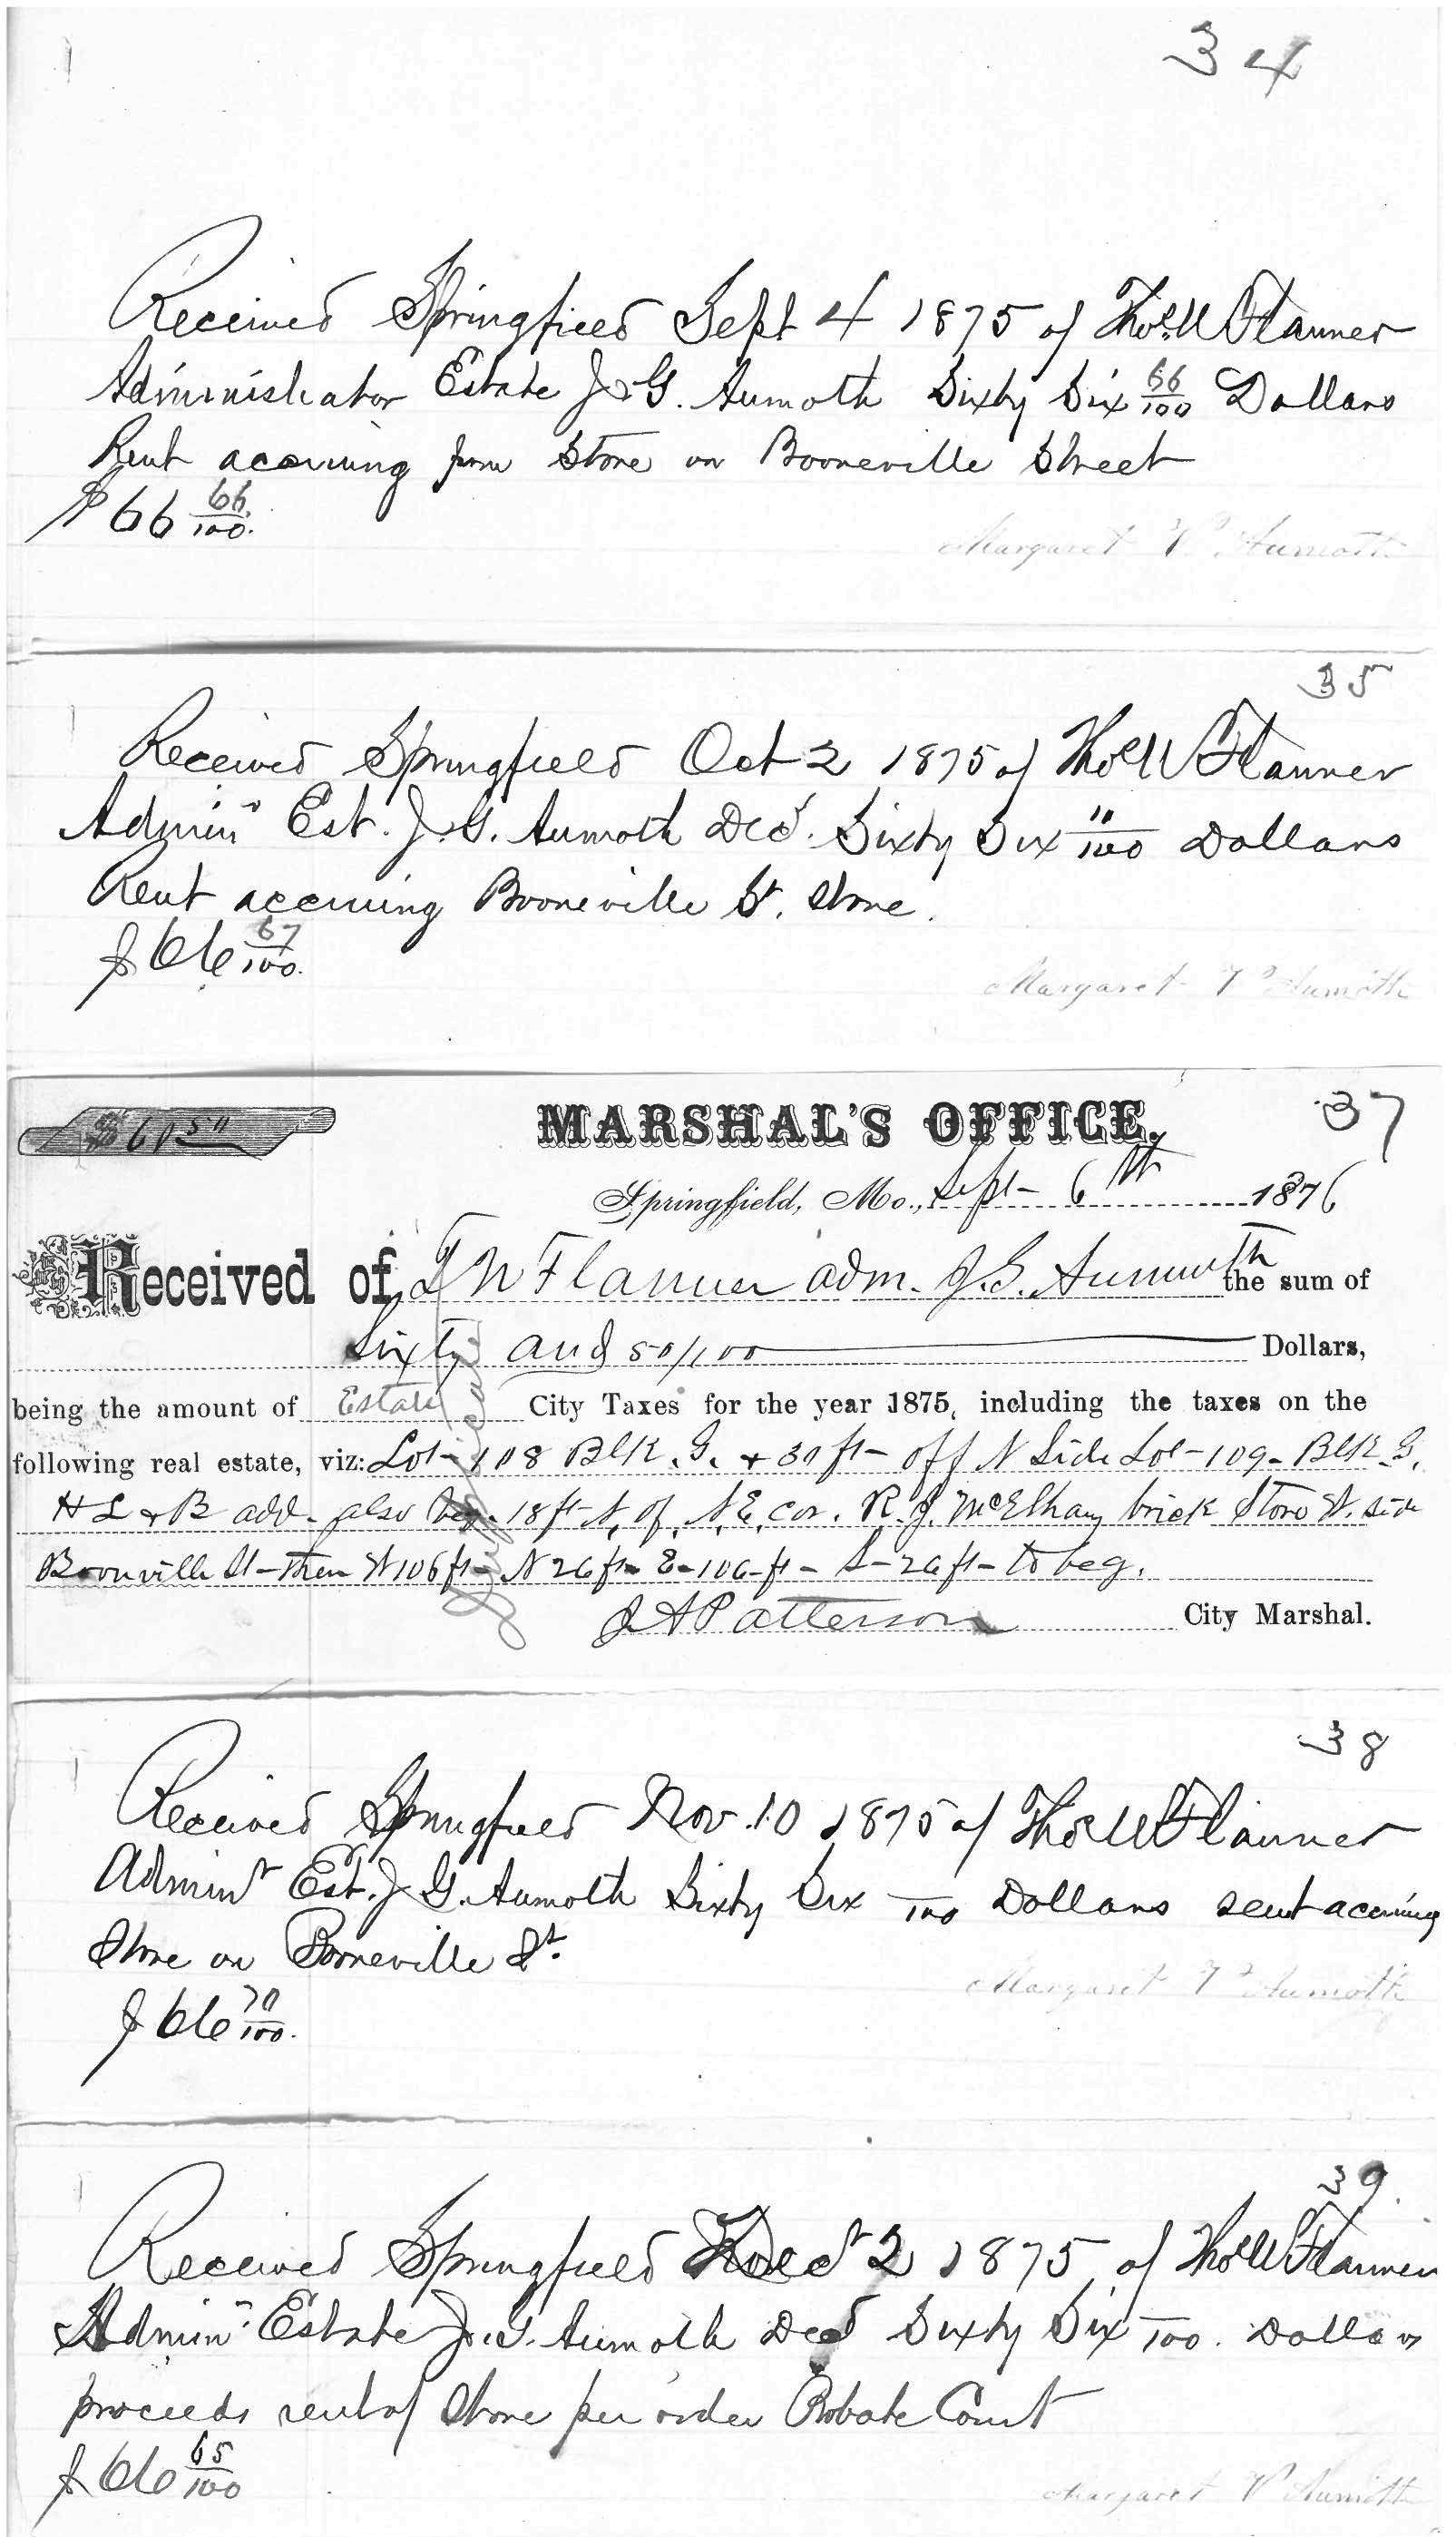 34
Received Springfield Sept 4 1875 of Thos. W Flanner
Administrator Estate J. G. Aumoth Sixty Six 66/100 Dollars
Rent accruing from Store on Booneville Street
$66 66/100.
Margaret V. Aumoth
35
Received Springfield Oct 2 1875 of Thos W Flanner
Admin Est. J. G. Aumoth Decd. Sixty Six "/100 Dollars
Rent accruing Booneville St. Store.
$66 67/100.
Margaret V Aumoth
$60 50
MARSHAL'S OFFICE.
37
Springfield, Mo., Sept- 6th 1876
Received of T W Flanner adm. J. G. Aumuoth the sum of
Sixty and 50/100 Dollars,
being the amount of Estate City Taxes for the year 1875, including the taxes on the
following real estate, viz: Lot- 108 Blk. G. + 30 ft- off N Side Lot- 109- Blk G.
H L & B add- also beg. 18 ft N. of N. E. cor. R. J. McElhany brick Store W. side
Boonville St- then W 106 ft- N 26 ft- E- 106- ft- S- 26 ft- to beg.
Duplicate
J A Patterson City Marshal.
38
Received Springfield Nov. 10 1875 of Thos W Flanner
Adminr Est. J G. Aumoth Sixty Six /100 Dollars rent accruing
Store on Booneville St.
$66 70/100.
Margaret V Aumoth
39
Received Springfield Dec 2 1875 of Thos W Flanner
Admin Estate J. G. Aumoth Decd Sixty Six /100. Dollars
proceeds rent of Store per order Probate Court
$66 65/100
Margaret V Aumoth